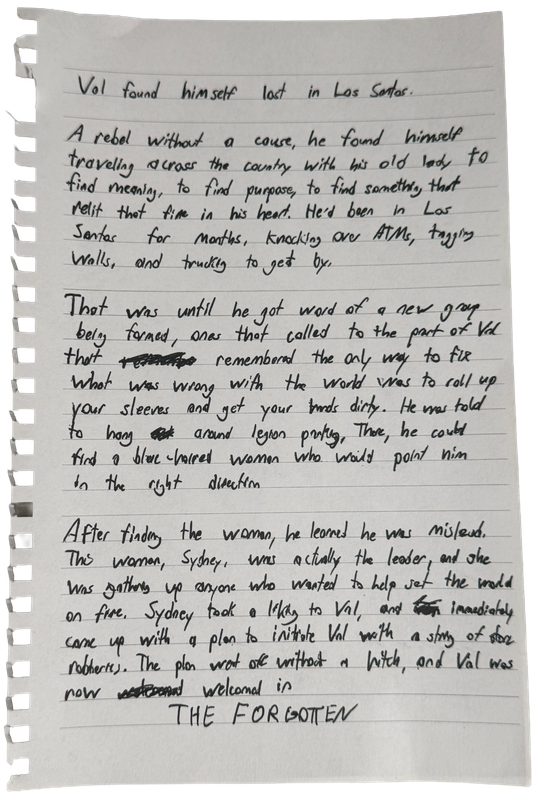 Val found himself lost in Los Santos.
A rebel without a cause, he found himself
traveling across the country with his old lady to
find meaning, to find purpose, to find something that
relit that fire in his heart. He'd been in Los
Santos for months, knocking over ATMs, tagging
walls, and trucking to get by.
That was until he got word of a new group
being formed, ones that called to the part of Val
that remembered the only way to fix
what was wrong with the world was to roll up
your sleeves and get your hands dirty. He was told
to hang around legion parking, There, he could
find a blue-haired woman who would point him
in the right direction
After finding the woman, he learned he was mislead.
This woman, Sydney, was actually the leader, and she
was gathering up anyone who wanted to help set the world
on fire. Sydney took a liking to Val, and immediately
came up with a plan to initiate Val with a string of store
robberies. The plan went off without a hitch, and Val was
now welcomed in
THE FORGOTTEN